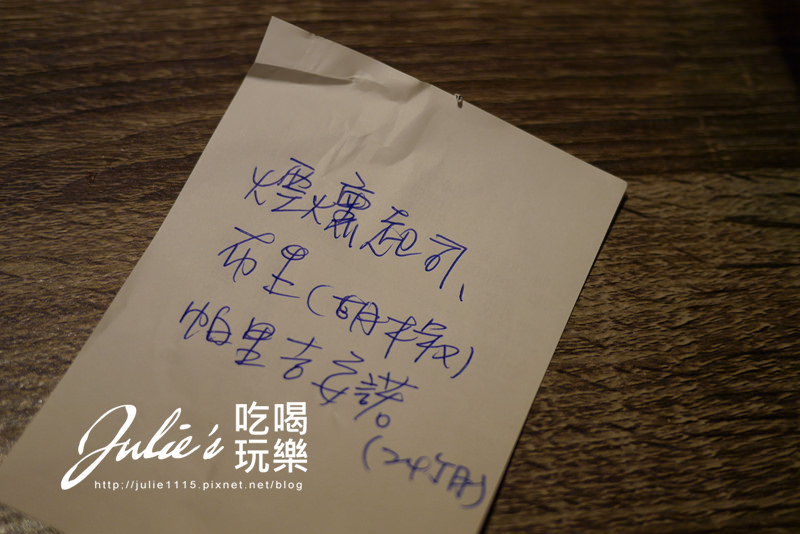 煙燻起司、
布里(胡椒)
帕里吉安諾
(24個月)
Julie's 吃喝玩樂
http;//julie1115.pixnet.net/blog